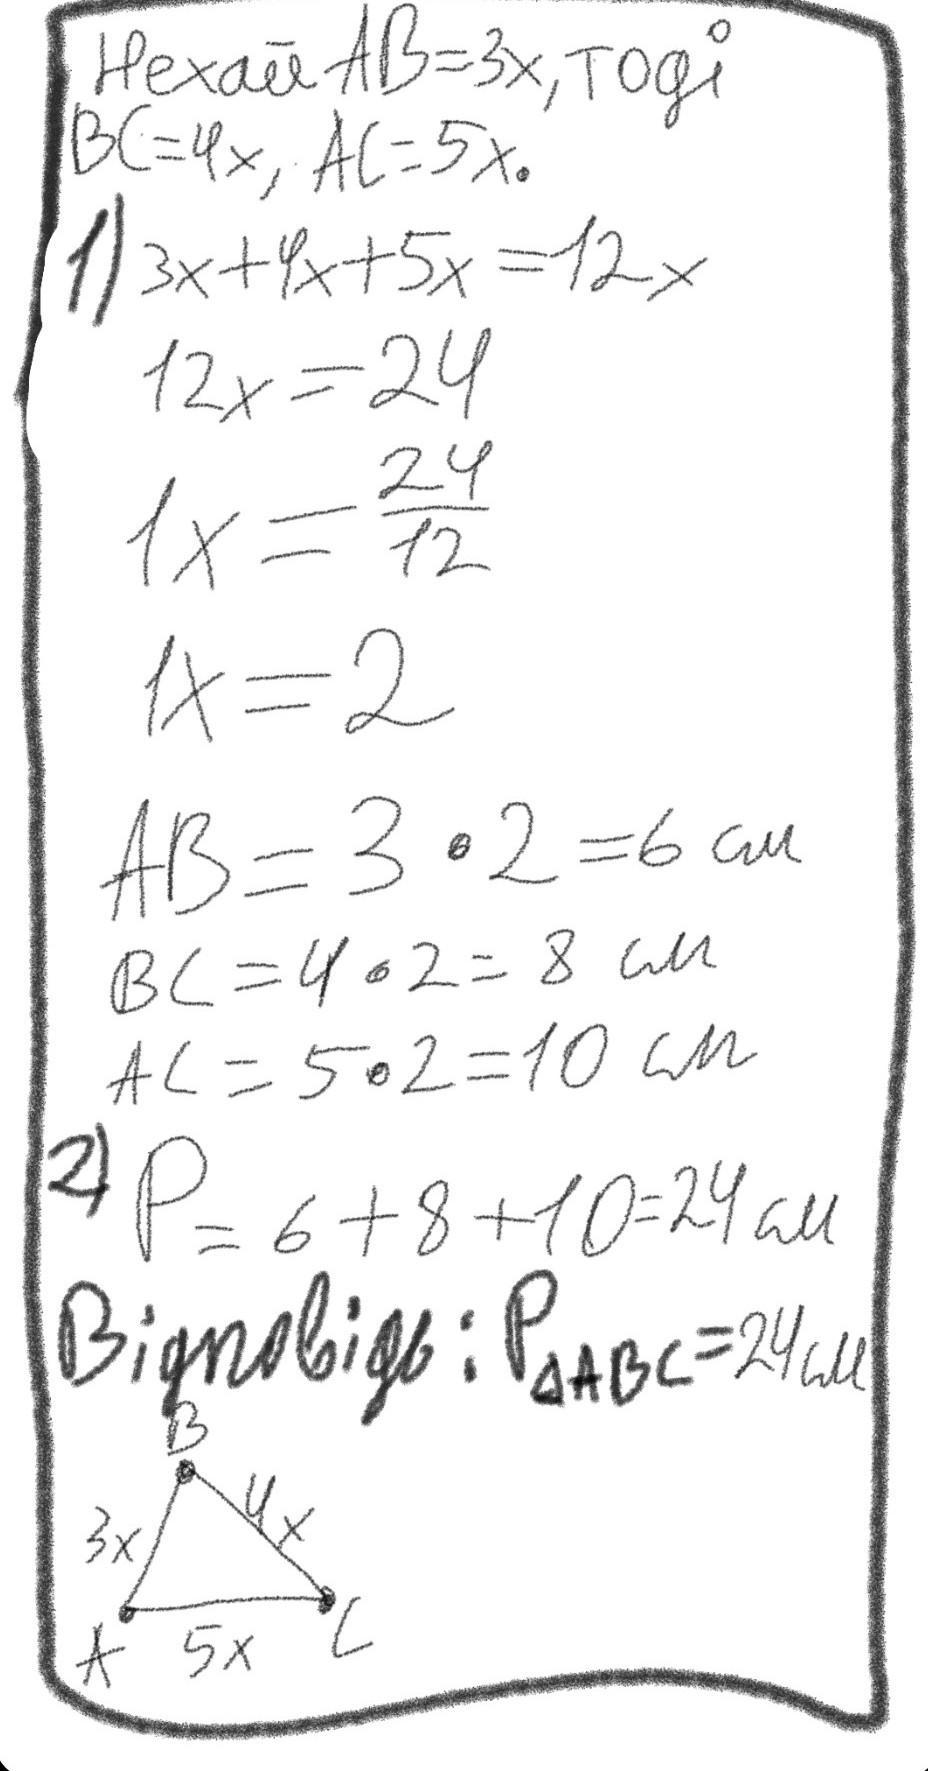 Нехай AB=3x, тоді
BC=4x, AC=5x.
1) 3x+4x+5x=12x
12x=24
1x=24/12
1x=2
AB=3•2=6 см
BC=4•2=8 см
AC=5•2=10 см
2) P=6+8+10=24 см
Відповідь: P△ABC=24 см
B
3x 4x
A 5x C